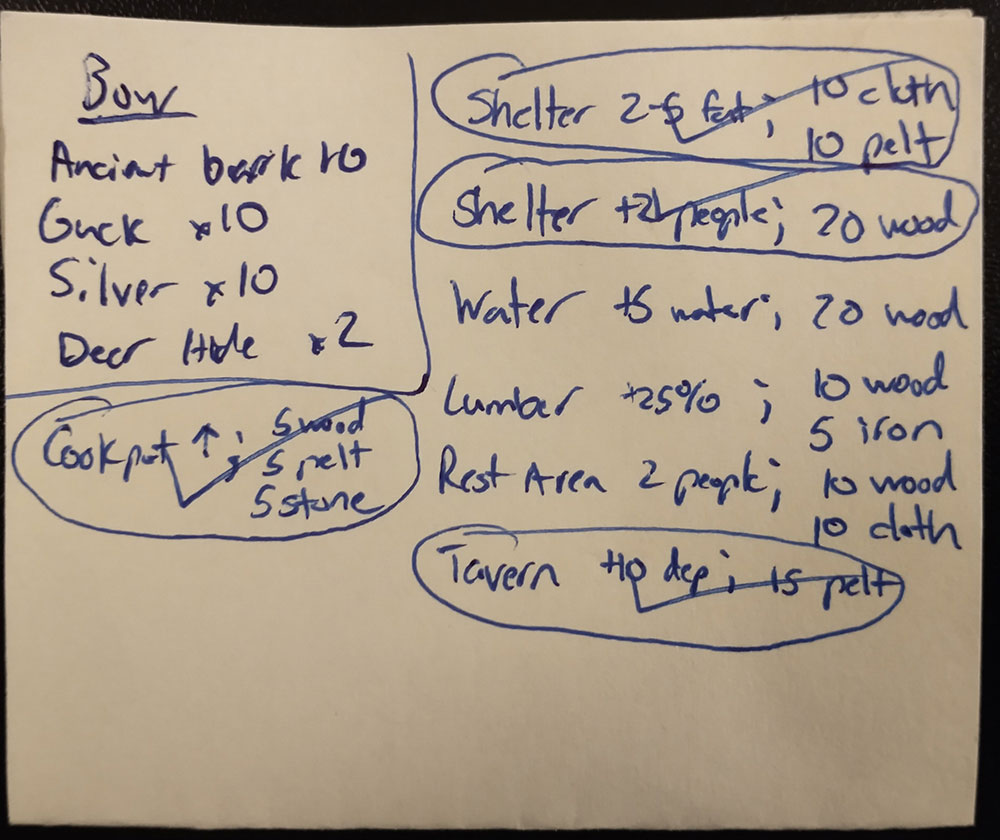 Bow
Ancient bark x10
Guck x10
Silver x10
Deer Hide x2
Cook pot ↑; 5 wood
5 pelt
5 stone
Shelter 2 ; 10 cloth
10 pelt
Shelter +2 people; 20 wood
Water +5 water; 20 wood
Lumber +25% ; 10 wood
5 iron
Rest Area 2 people; 10 wood
10 cloth
Tavern +10 dep; 15 pelt